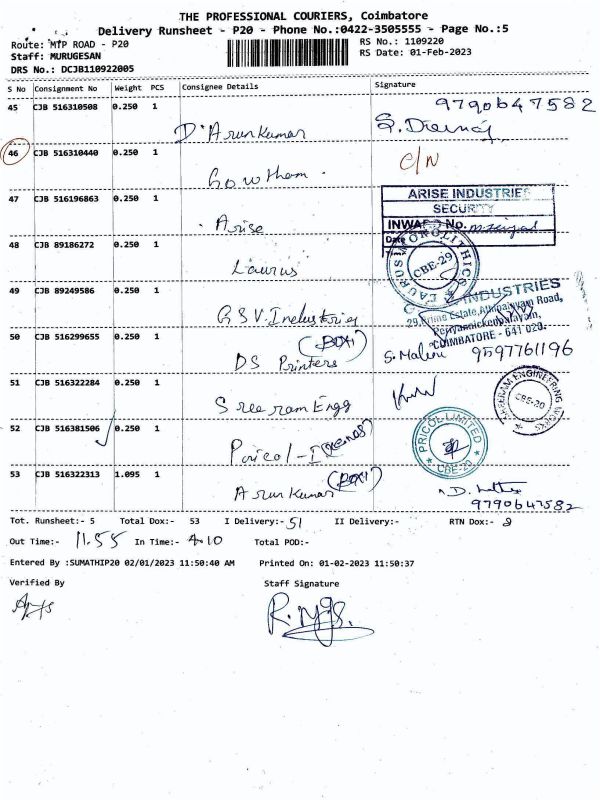 THE PROFESSIONAL COURIERS, Coimbatore
Delivery Runsheet - P20 - Phone No.:0422-3505555 - Page No.:5
Route: MTP ROAD - P20
RS No.: 1109220
Staff: MURUGESAN
RS Date: 01-Feb-2023
DRS No.: DCJB110922005
S No Consignment No Weight PCS Consignee Details Signature
45 CJB 516310508 0.250 1 D. Arunkumar 9790647582
46 CJB 516310440 0.250 1 Gowtham. C/N
47 CJB 516196863 0.250 1 Arise
ARISE INDUSTRIES
SECURITY
INWARD No.
Date
Time
48 CJB 89186272 0.250 1 Laurus
LAURUS MONOLITHICS
CBE-29
49 CJB 89249586 0.250 1 GSV. Industries
INDUSTRIES
29, Prime Estate, Athipalayam Road,
Periyannickenpalayam,
COIMBATORE - 641 020.
50 CJB 516299655 0.250 1 DS Printers (BOX1) S. Malini 9597761196
51 CJB 516322284 0.250 1 Sreeram Engg
ENGINEERING WORKS
CBE-20
52 CJB 516381506 0.250 1 Pricol - I
PRICOL LIMITED
CBE-20
53 CJB 516322313 1.095 1 Arun kumar (BOX1) 9790647582
Tot. Runsheet:- 5 Total Dox:- 53 I Delivery:- 51 II Delivery:- RTN Dox:- 2
Out Time:- 11.55 In Time:- 4.10 Total POD:-
Entered By :SUMATHIP20 02/01/2023 11:50:40 AM Printed On: 01-02-2023 11:50:37
Verified By Staff Signature